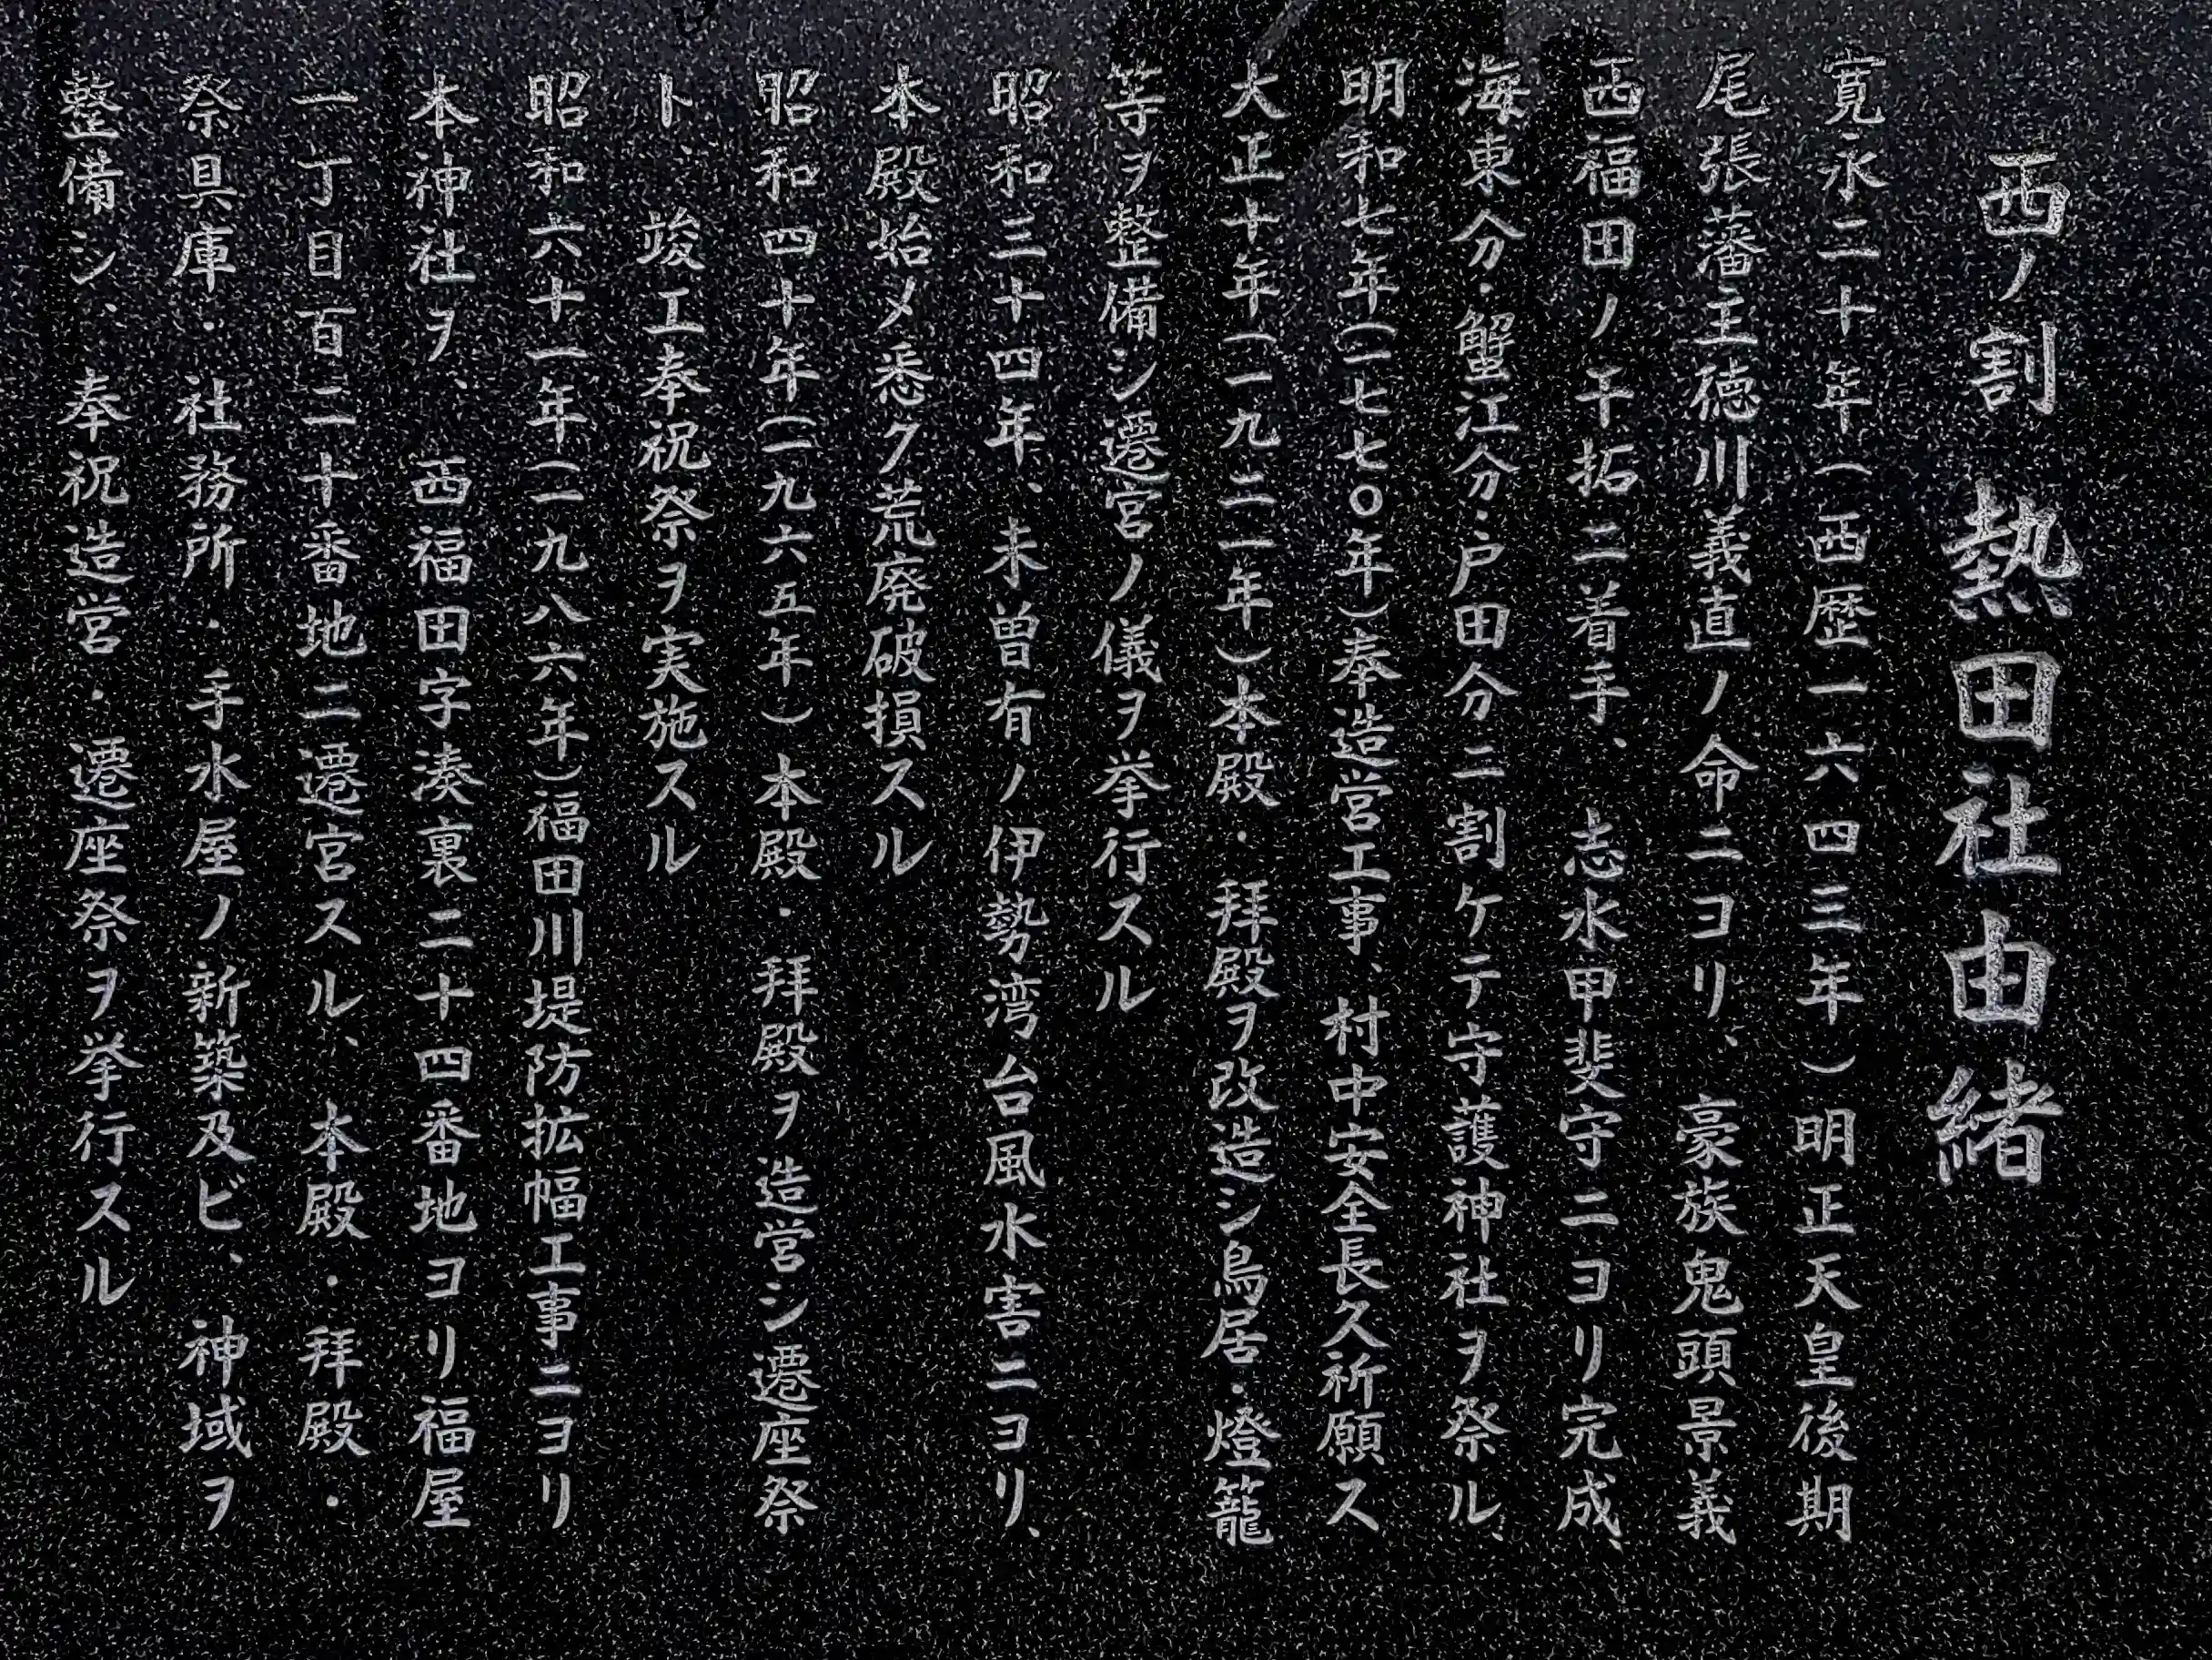 西ノ割 熱田社由緒
寛永二十年(西歴一六四三年)明正天皇後期
尾張藩主徳川義直ノ命ニヨリ、豪族鬼頭景義
西福田ノ干拓ニ着手、志水甲斐守ニヨリ完成、
海東分・蟹江分・戸田分ニ割ケテ守護神社ヲ祭ル、
明和七年(一七七〇年)奉造営工事、村中安全長久祈願ス
大正十年(一九二一年)本殿・拝殿ヲ改造シ鳥居・燈籠
等ヲ整備シ遷宮ノ儀ヲ挙行スル
昭和三十四年、未曽有ノ伊勢湾台風水害ニヨリ、
本殿始メ悉ク荒廃破損スル
昭和四十年(一九六五年)本殿・拝殿ヲ造営シ遷座祭
ト 竣工奉祝祭ヲ実施スル
昭和六十一年(一九八六年)福田川堤防拡幅工事ニヨリ
本神社ヲ、西福田字湊裏二十四番地ヨリ福屋
一丁目百二十番地ニ遷宮スル、本殿・拝殿・
祭具庫・社務所・手水屋ノ新築及ビ、神域ヲ
整備シ、奉祝造営・遷座祭ヲ挙行スル